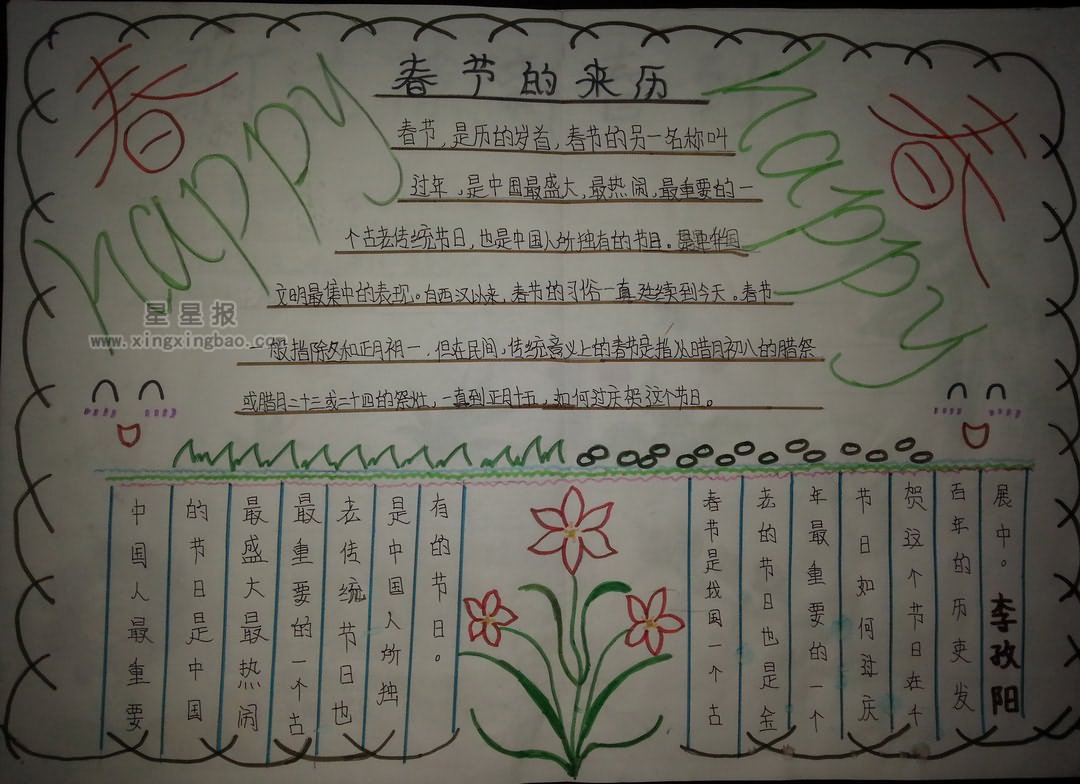 春节的来历
春
happy
happy
春
春节，是历的岁首，春节的另一名称叫
过年，是中国最盛大，最热闹，最重要的一
个古老传统节日，也是中国人所独有的节日。是中华国
文明最集中的表现。自西汉以来，春节的习俗一直延续到今天。春节
一般指除夕和正月初一，但在民间，传统意义上的春节是指从腊月初八的腊祭
或腊月二十三或二十四的祭灶，一直到正月十五，如何过庆贺这个节日。
星星报
www.xingxingbao.com
中国人最重要
的节日是中国
最盛大最热闹
最重要的一个古
老传统节日也
是中国人所独
有的节日。
春节是我国一个古
老的节日也是全
年最重要的一个
节日如何过庆
贺这个节日在千
百年的历史发
展中。
李孜阳